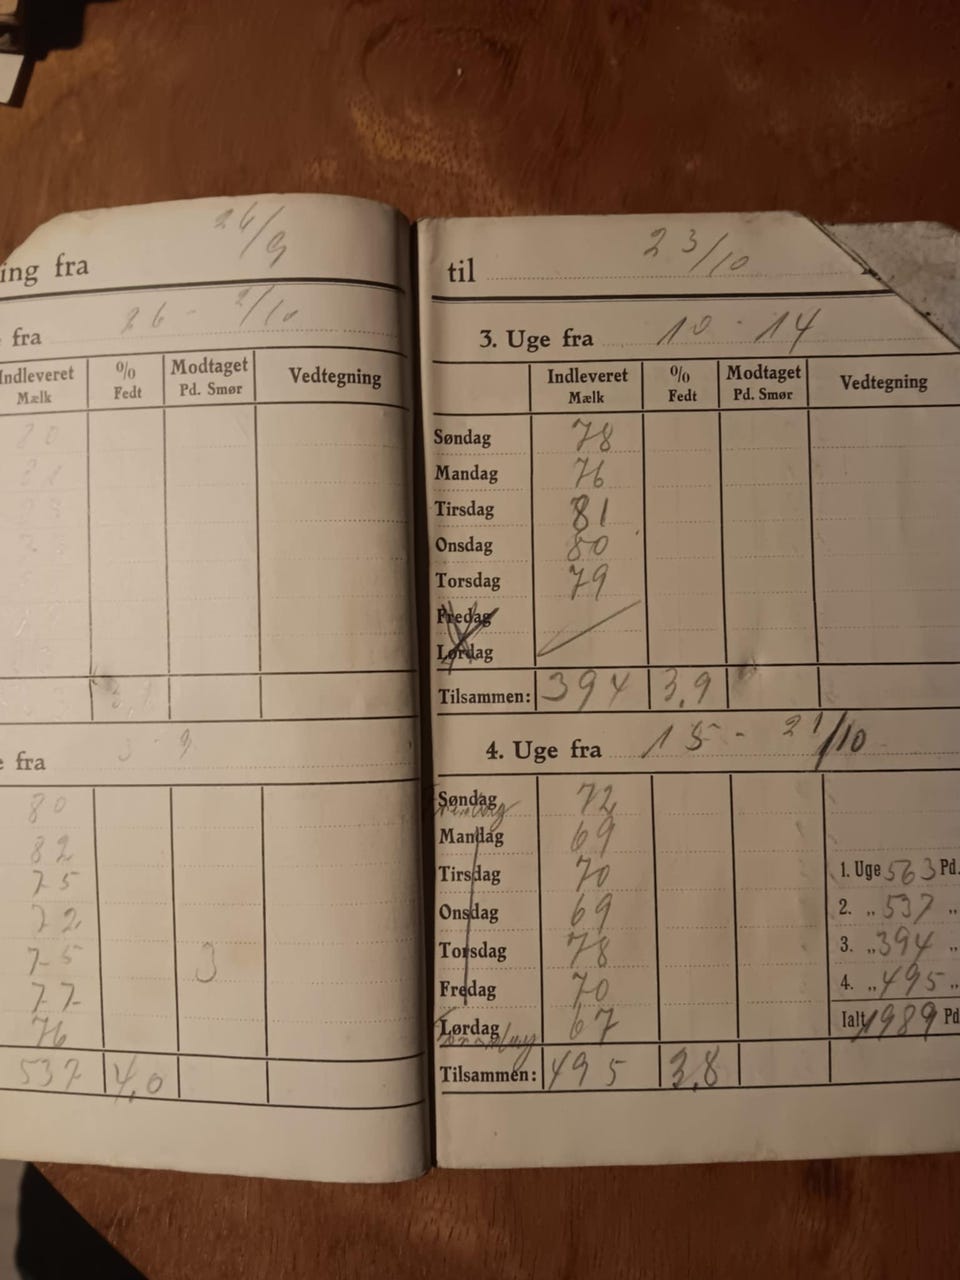 ing fra 26/9
fra 26 - 2/10
Indleveret Mælk % Fedt Modtaget Pd. Smør Vedtegning
fra 3 - 9
80
82
75
72
75 3
77
76
537 4,0
til 23/10
3. Uge fra 10 - 14
Indleveret Mælk % Fedt Modtaget Pd. Smør Vedtegning
Søndag 78
Mandag 76
Tirsdag 81
Onsdag 80
Torsdag 79
Fredag
Lørdag
Tilsammen: 394 3,9
4. Uge fra 15 - 21/10
Søndag 72
Mandag 69
Tirsdag 70 1. Uge 563 Pd.
Onsdag 69 2. „ 537 „
Torsdag 78 3. „ 394 „
Fredag 70 4. „ 495 „
Lørdag 67 Ialt 1989 Pd
Tilsammen: 495 3,8